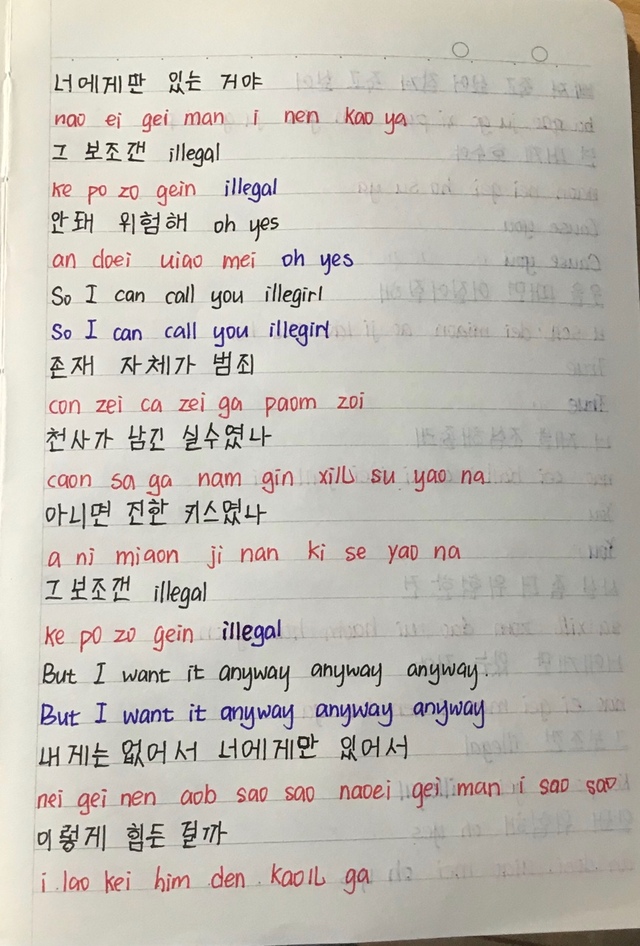 너에게만 있는 거야
nao ei gei man i nen kao ya
그 보조갠 illegal
ke po zo gein illegal
안돼 위험해 oh yes
an doei uiao mei oh yes
So I can call you illegirl
So I can call you illegirl
존재 자체가 범죄
con zei ca zei ga paom zoi
천사가 남긴 실수였나
caon sa ga nam gin xill su yao na
아니면 진한 키스였나
a ni miaon ji nan ki se yao na
그 보조갠 illegal
ke po zo gein illegal
But I want it anyway anyway anyway.
But I want it anyway anyway anyway
내게는 없어서 너에게만 있어서
nei gei nen aob sao sao naoei gei man i sao sao
이렇게 힘든 걸까
i lao kei him den kaoll ga